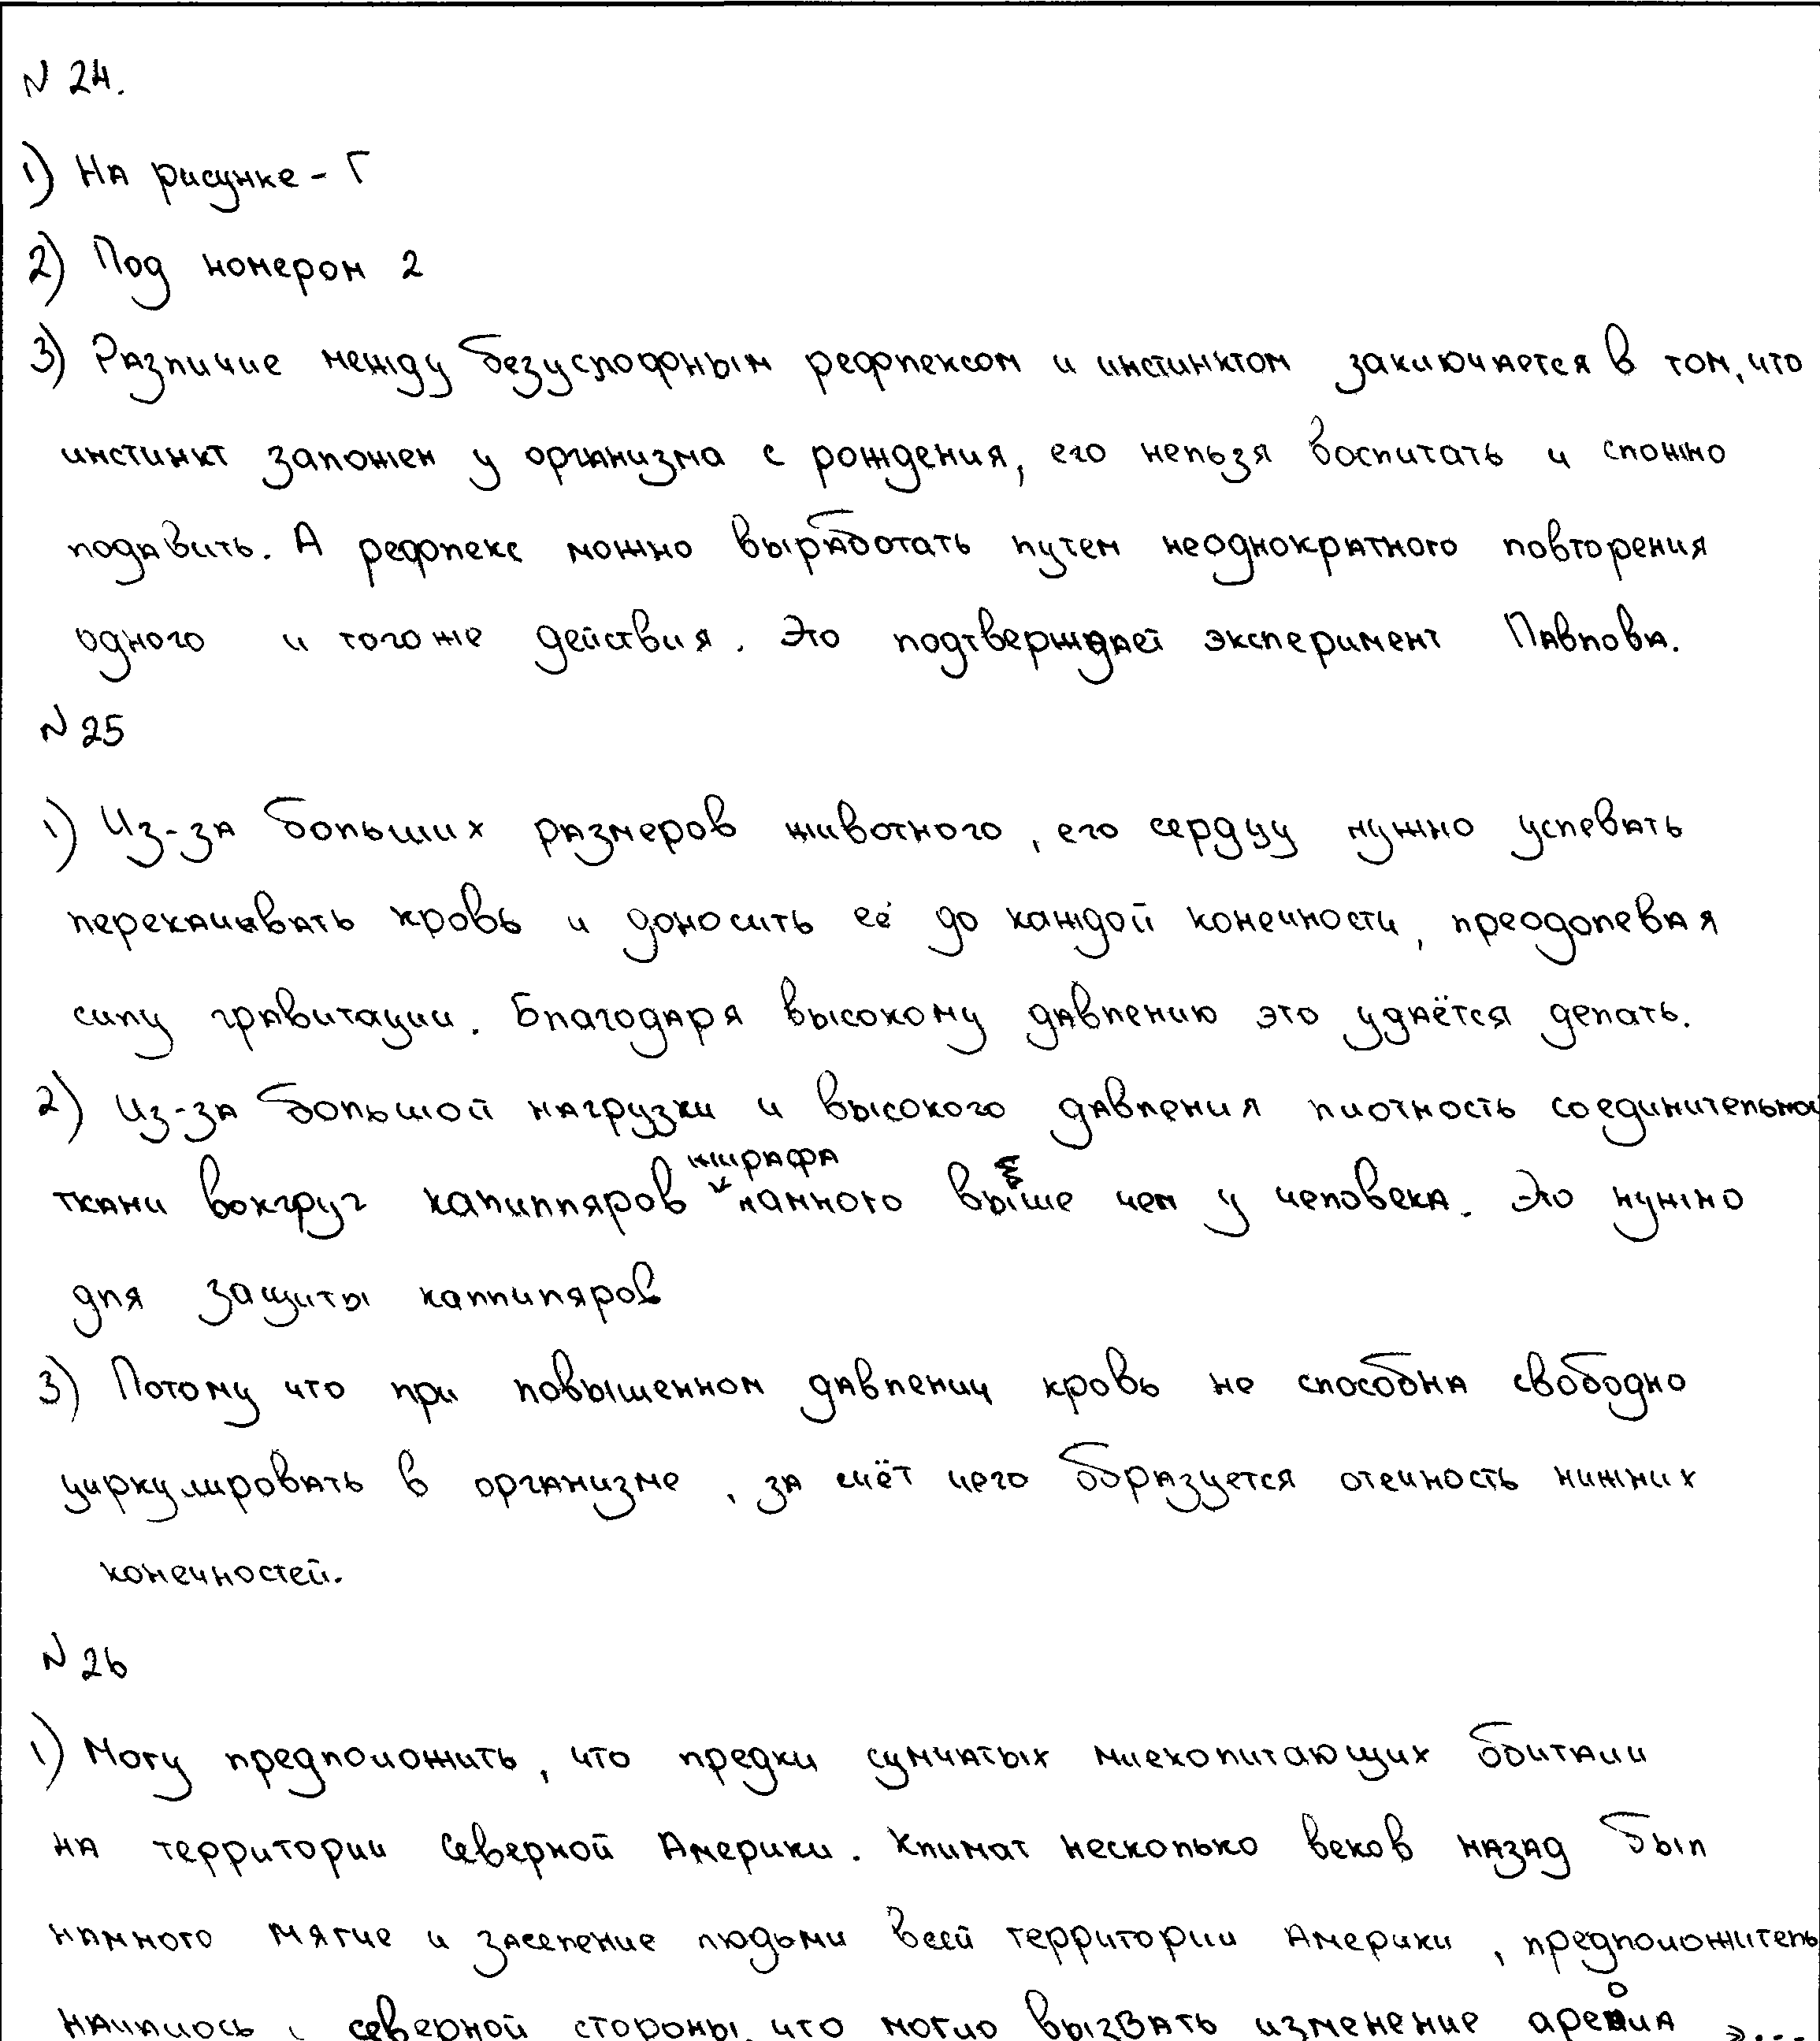 N 24.
1) На рисунке - Г
2) Под номером 2
3) Различие между безуслофным рефлексом и инстинктом заключается в том, что
инстинкт заложен у организма с рождения, его нельзя воспитать и сложно
подавить. А рефлекс можно выработать путем неоднократного повторения
одного и того же действия. Это подтверждает эксперимент Павлова.
N 25
1) Из-за больших размеров животного, его сердцу нужно успевать
перекачивать кровь и доносить её до каждой конечности, преодолевая
силу гравитации. Благодаря высокому давлению это удаётся делать.
2) Из-за большой нагрузки и высокого давления плотность соединительной
жирафа
ткани вокруг капилляров намного выше чем у человека. Это нужно
для защиты каппиляров
3) Потому что при повышенном давлении кровь не способна свободно
циркулировать в организме, за счёт чего образуется отечность нижних
конечностей.
N 26
1) Могу предположить, что предки сумчатых млекопитающих обитали
на территории Северной Америки. Климат несколько веков назад был
намного мягче и заселение людьми всей территории Америки, предположитель
началось с северной стороны, что могло вызвать изменение ареола